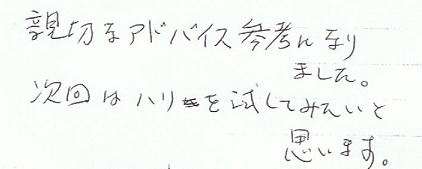 親切なアドバイス参考になり
ました。
次回はハリを試してみたいと
思います。